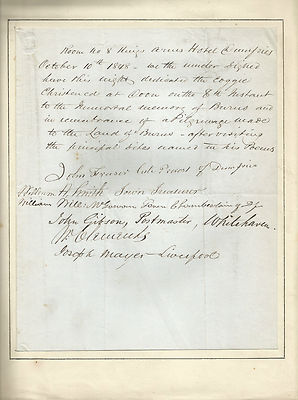 Room no 8 Kings Arms Hotel Dumfries
October 10th 1848 - we the under signed
have this night dedicated the Coggie
Christened at Doon on the 8th Instant
to the Immortal memory of Burns and
in remembrance of a Pilgrimage made
to the Land of Burns - after visiting
the principal sites named in his Poems
John Fraser late Provost of Dumfries
William H Smith Town Treasurer
William McGowan Town Chamberlain
John Gibson, Postmaster, Whitehaven.
W Clements
Joseph Mayer Liverpool